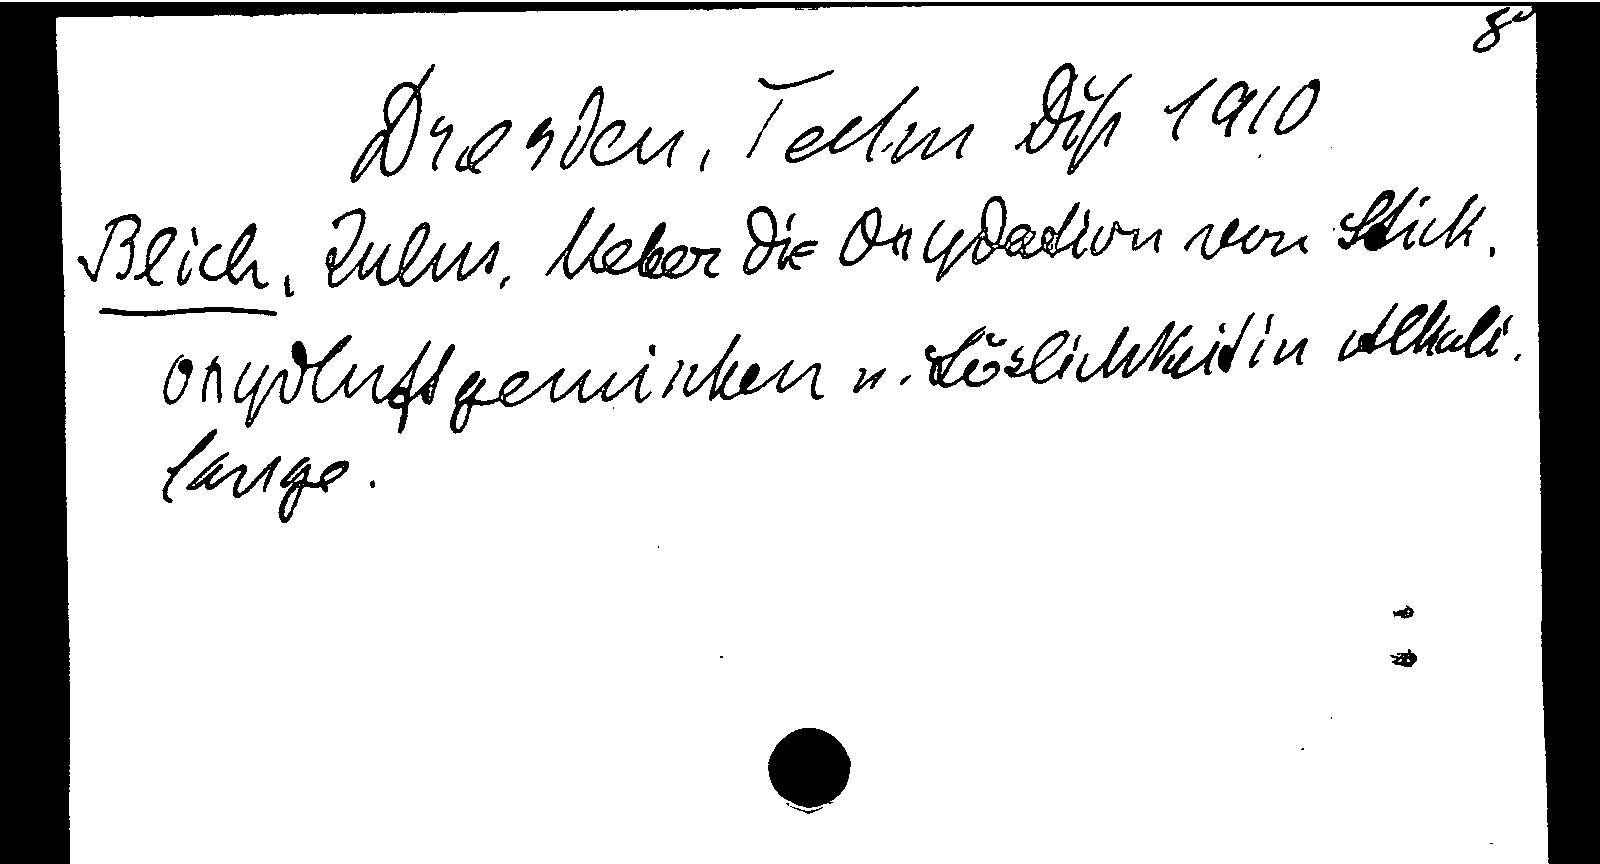 8°
Dresden, Techn Diss 1910
Blich, Julius. Ueber die Oxydation von Stick-
oxydluftgemischen u. Löslichkeit in Alkali-
lauge.